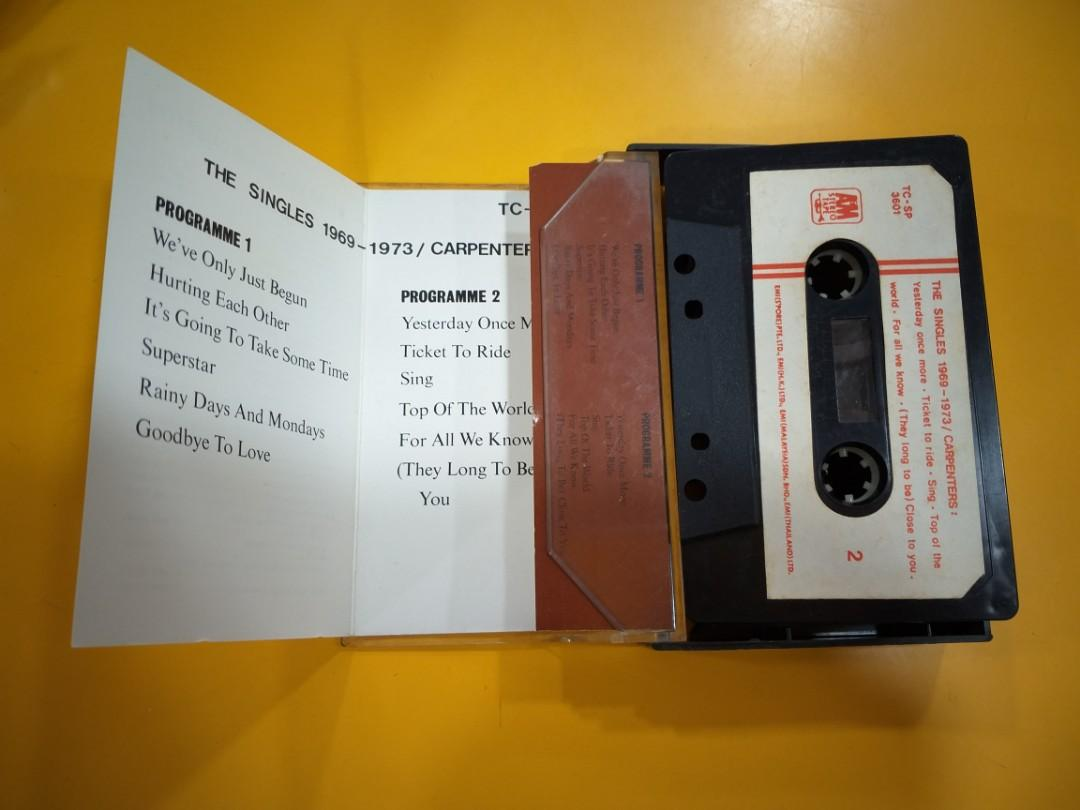 THE SINGLES 1969-1973/ CARPENTER
PROGRAMME 1
We've Only Just Begun
Hurting Each Other
It's Going To Take Some Time
Superstar
Rainy Days And Mondays
Goodbye To Love
TC-
PROGRAMME 2
Yesterday Once M
Ticket To Ride
Sing
Top Of The World
For All We Know
(They Long To Be
You
PROGRAMME 1
We've Only Just Begun
Hurting Each Other
It's Going To Take Some Time
Superstar
Rainy Days And Mondays
Goodbye To Love
PROGRAMME 2
Yesterday Once More
Ticket To Ride
Sing
Top Of The World
For All We Know
(They Long To Be) Close To You
A&M
STEREO
TAPE
TC-SP
3601
THE SINGLES 1969-1973/ CARPENTERS:
Yesterday once more · Ticket to ride · Sing · Top of the
world · For all we know · (They long to be) Close to you ·
2
EMI(S'PORE)PTE.LTD., EMI(H.K.)LTD., EMI(MALAYSIA)SDN. BHD., EMI(THAILAND)LTD.